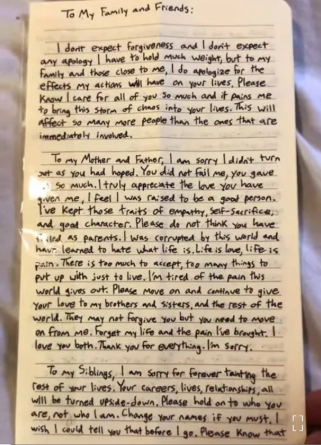 To My Family and Friends:
I dont expect forgiveness and I don't expect
any apology I have to hold much weight, but to my
family and those close to me, I do apologize for the
effects my actions will have on your lives. Please
Know I care for all of you so much and it pains me
to bring this storm of chaos into your lives. This will
affect so many more people than the ones that are
immediately involved.
To my Mother and Father, I am sorry I didn't turn
out as you had hoped. You did not fail me, you gave
so much. I truly appreciate the love you have
given me, I feel I was raised to be a good person.
I've kept those traits of empathy, self-sacrifice,
and good character. Please do not think you have
failed as parents. I was corrupted by this world and
have learned to hate what life is. Life is love, life is
pain. There is too much to accept, too many things to
put up with just to live. I'm tired of the pain this
world gives out. Please move on and continue to give
your love to my brothers and sisters, and the rest of the
world. They may not forgive you but you need to move
on from me. Forget my life and the pain I've brought. I
love you both. Thank you for everything. I'm sorry.
To my Siblings, I am sorry for forever tainting the
rest of your lives. Your careers, lives, relationships, all
will be turned upside-down. Please hold on to who you
are, not who I am. Change your names if you must, I
wish I could tell you that before I go. Please Know that